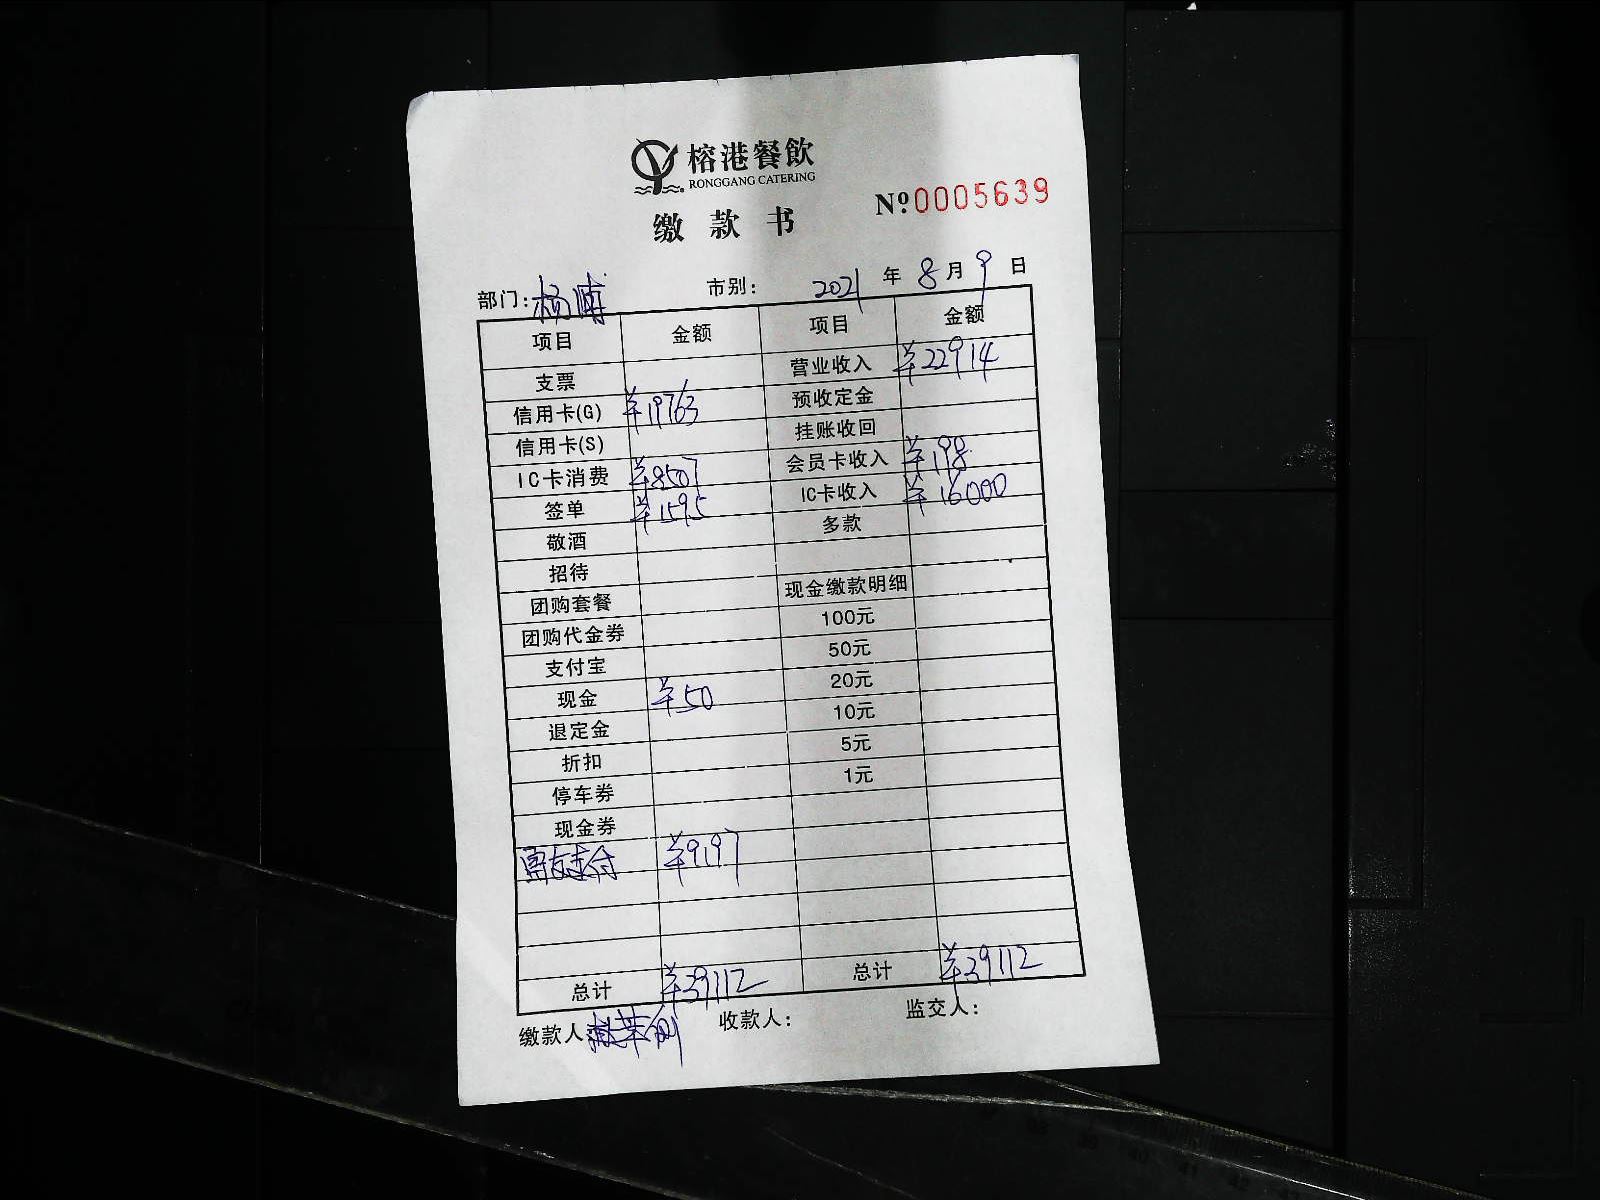 榕港餐飲
RONGGANG CATERING
缴款书
Nº 0005639
部门：杨浦 市别： 2021年8月9日
项目 金额 项目 金额
支票 营业收入 ¥22914
信用卡(G) ¥19763 预收定金
信用卡(S) 挂账收回
IC卡消费 ¥8507 会员卡收入 ¥198
签单 ¥1595 IC卡收入 ¥16000
敬酒 多款
招待
团购套餐 现金缴款明细
团购代金券 100元
支付宝 50元
现金 ¥50 20元
退定金 10元
折扣 5元
停车券 1元
现金券
支付 ¥9197
总计 ¥39112 总计 ¥39112
缴款人 收款人： 监交人：